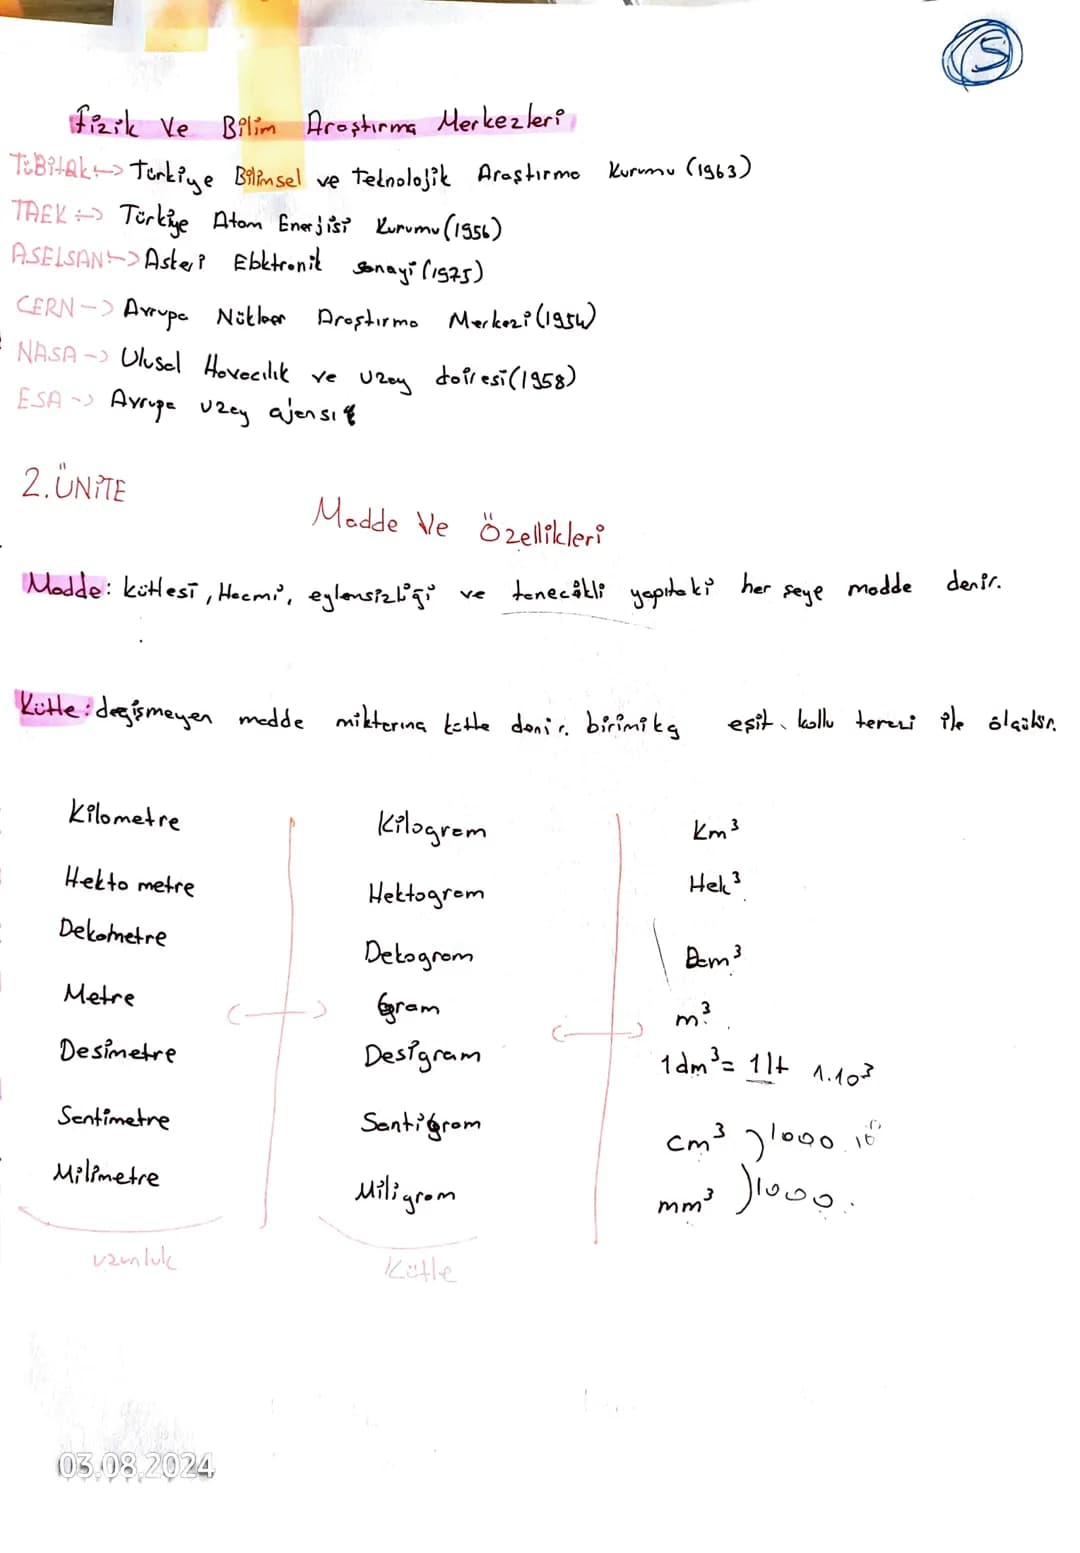 5
Fizik Ve Bilim Araştırma Merkezleri
TÜBİTAK --> Türkiye Bilimsel ve teknolojik Araştırma Kurumu (1963)
TAEK --> Türkiye Atom Enerjisi Kurumu (1956)
ASELSAN --> Askeri Elektronik sanayi (1975)
CERN --> Avrupa Nükleer Araştırma Merkezi (1954)
NASA --> Ulusal Havacılık ve uzay dairesi (1958)
ESA --> Avrupa uzay ajensı
2. ÜNİTE
Madde Ve Özellikleri
Madde: kütlesi, Hacmi, eylensizliği ve tanecikli yapıtaki her şeye madde denir.
Kütle: değişmeyen madde miktarına kütle denir. birimi kg eşit kollu terazi ile ölçülür.
Kilometre Kilogram Km³
Hekto metre Hektogram Hek³
Dekametre Dekogram Dam³
Metre Gram m³
Desimetre Desigram 1dm³ = 1lt 1.10³
Santimetre Santigram cm³ )1000
Milimetre Miligram mm³ )1000
uzunluk Kütle
03.08.2024